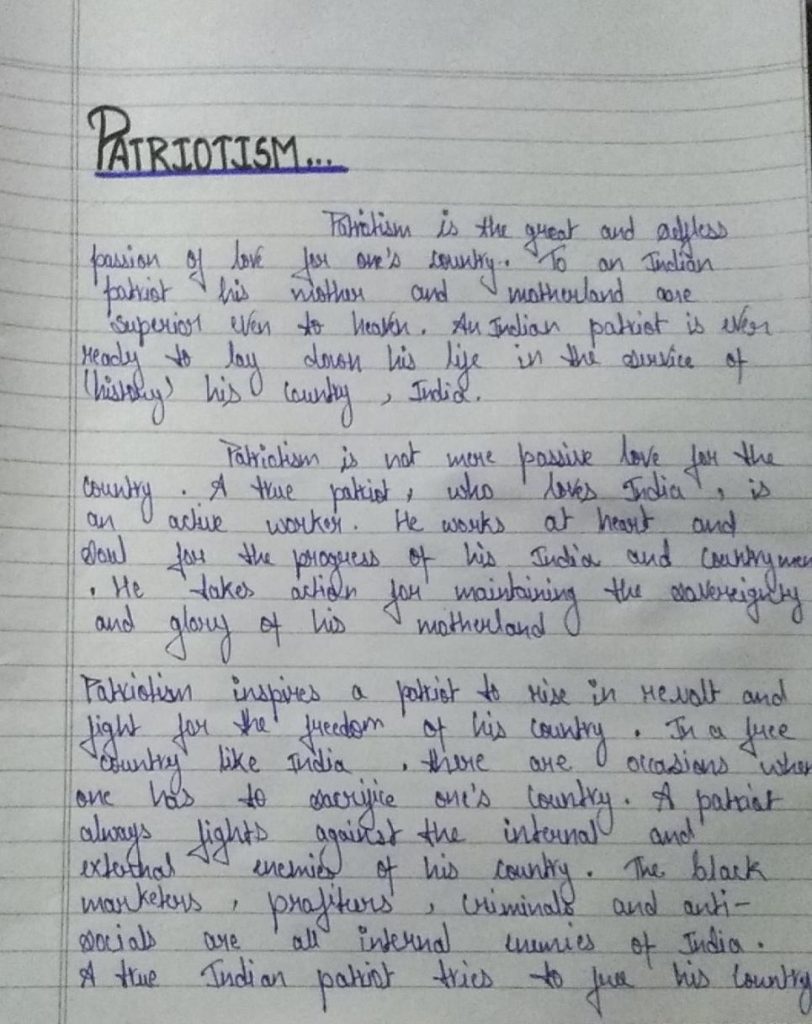 PATRIOTISM...
Patriotism is the great and selfless
passion of love for one's country. To an Indian
patriot his mother and motherland are
superior even to heaven. An Indian patriot is ever
ready to lay down his life in the service of
(history) his country, India.
Patriotism is not mere passive love for the
country. A true patriot, who loves India, is
an active worker. He works at heart and
soul for the progress of his India and countrymen
. He takes action for maintaining the sovereignty
and glory of his motherland
Patriotism inspires a patriot to rise in revolt and
fight for the freedom of his country. In a free
country like India, there are occasions when
one has to sacrifice one's country. A patriot
always fights against the internal and
external enemies of his country. The black
marketers, profiturs, criminals and anti-
socials are all internal enemies of India.
A true Indian patriot tries to free his country